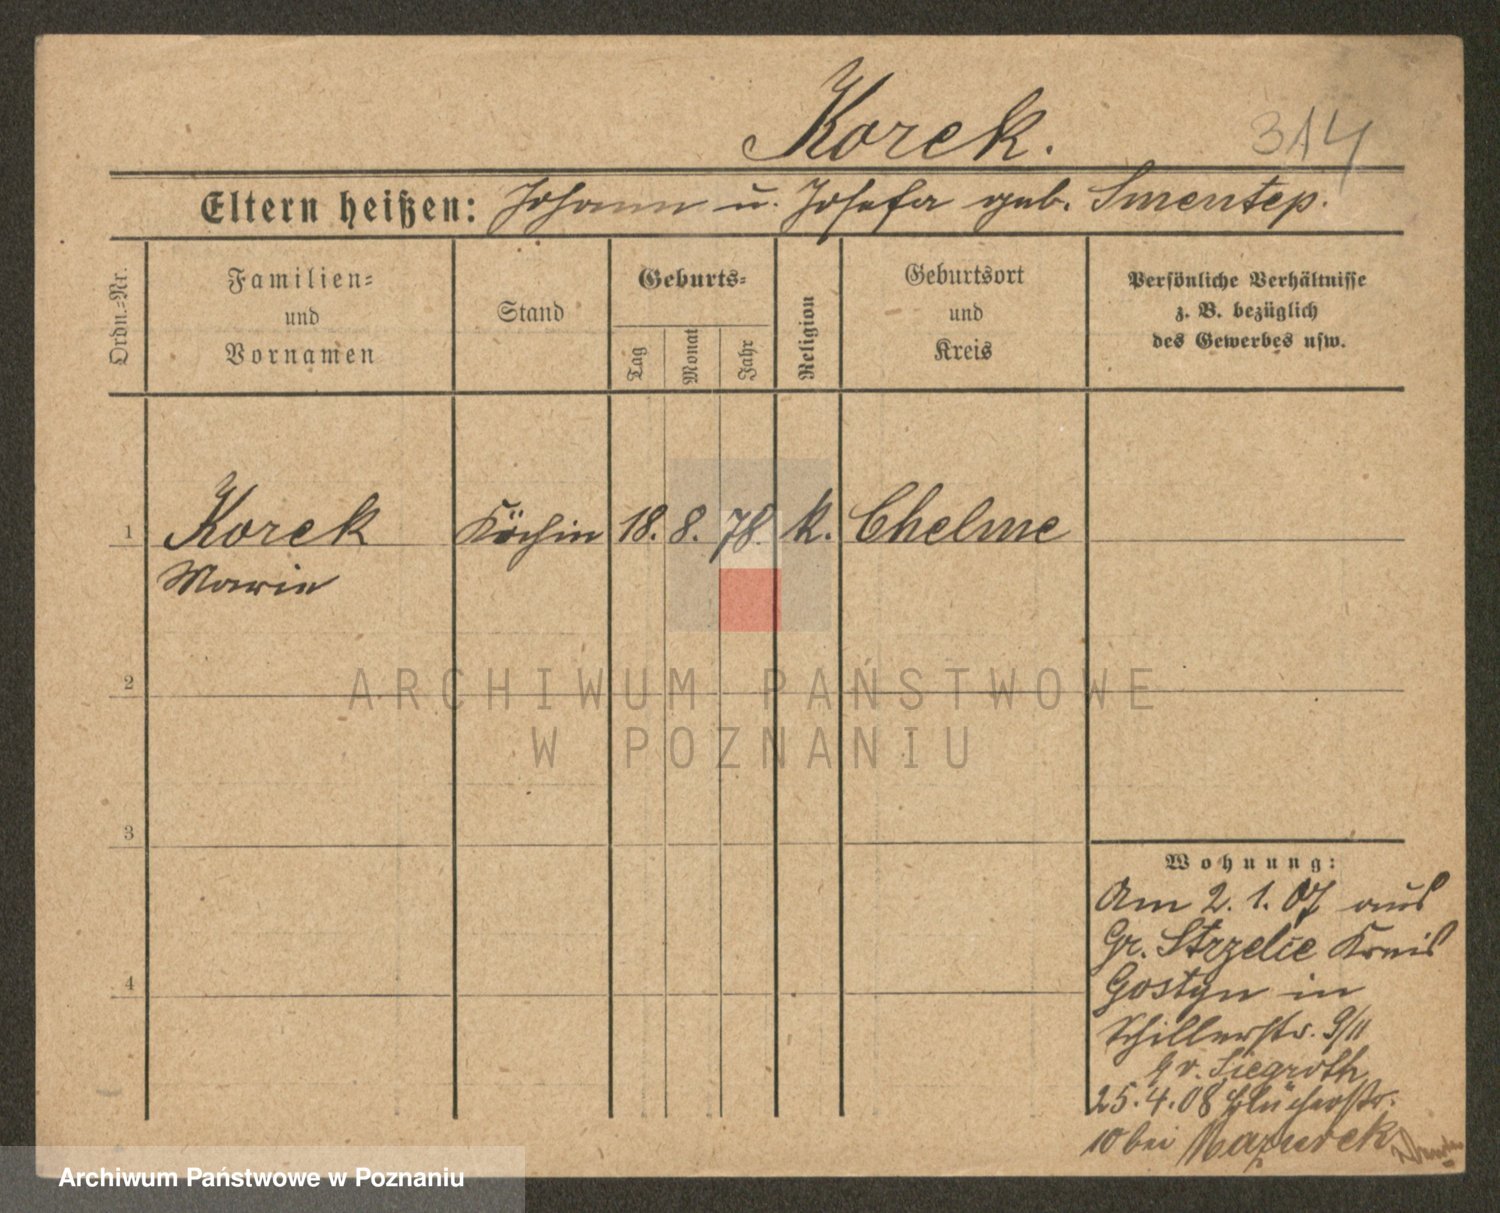 Korek.
314
Eltern heißen: Johann u. Josefa geb. Smentep.
Ordn.=Nr.
Familien=
und
Vornamen
Stand
Geburts=
Tag
Monat
Jahr
Religion
Geburtsort
und
Kreis
Persönliche Verhältnisse
z. B. bezüglich
des Gewerbes usw.
1 Korek Köchin 18. 8. 78. k. Chelme
Marie
2
3
4
ARCHIWUM PAŃSTWOWE
W POZNANIU
Wohnung:
Am 2. 1. 07 aus
Gr. Strzelce Kreis
Gostyn in
Schillerstr. 9/II
v. Siegroth
25. 4. 08 Blücherstr.
10 bei Mazurek
Archiwum Państwowe w Poznaniu